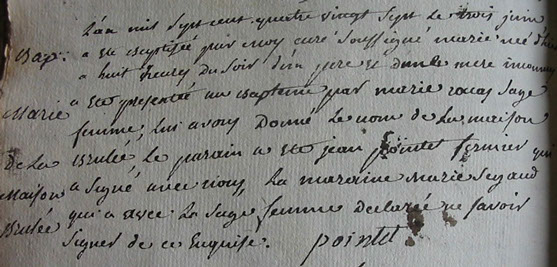 L'an mil sept cent quatre vingt sept le trois juin
Bap: a été baptisée par moy curé soussigné marie née d'hier
a huit heures du soir d'un pere et d'une mere inconnus
Marie a été presenté au Bapteme par marie sage
femme, lui avons Donné le nom de La maison
de La Brulée, le parain a été jean pointet fermier qui
Maison a signé avec nous, La maraine Marie
Brulée qui a avec La sage femme declarée ne savoir
signer de ce Enquise. pointet